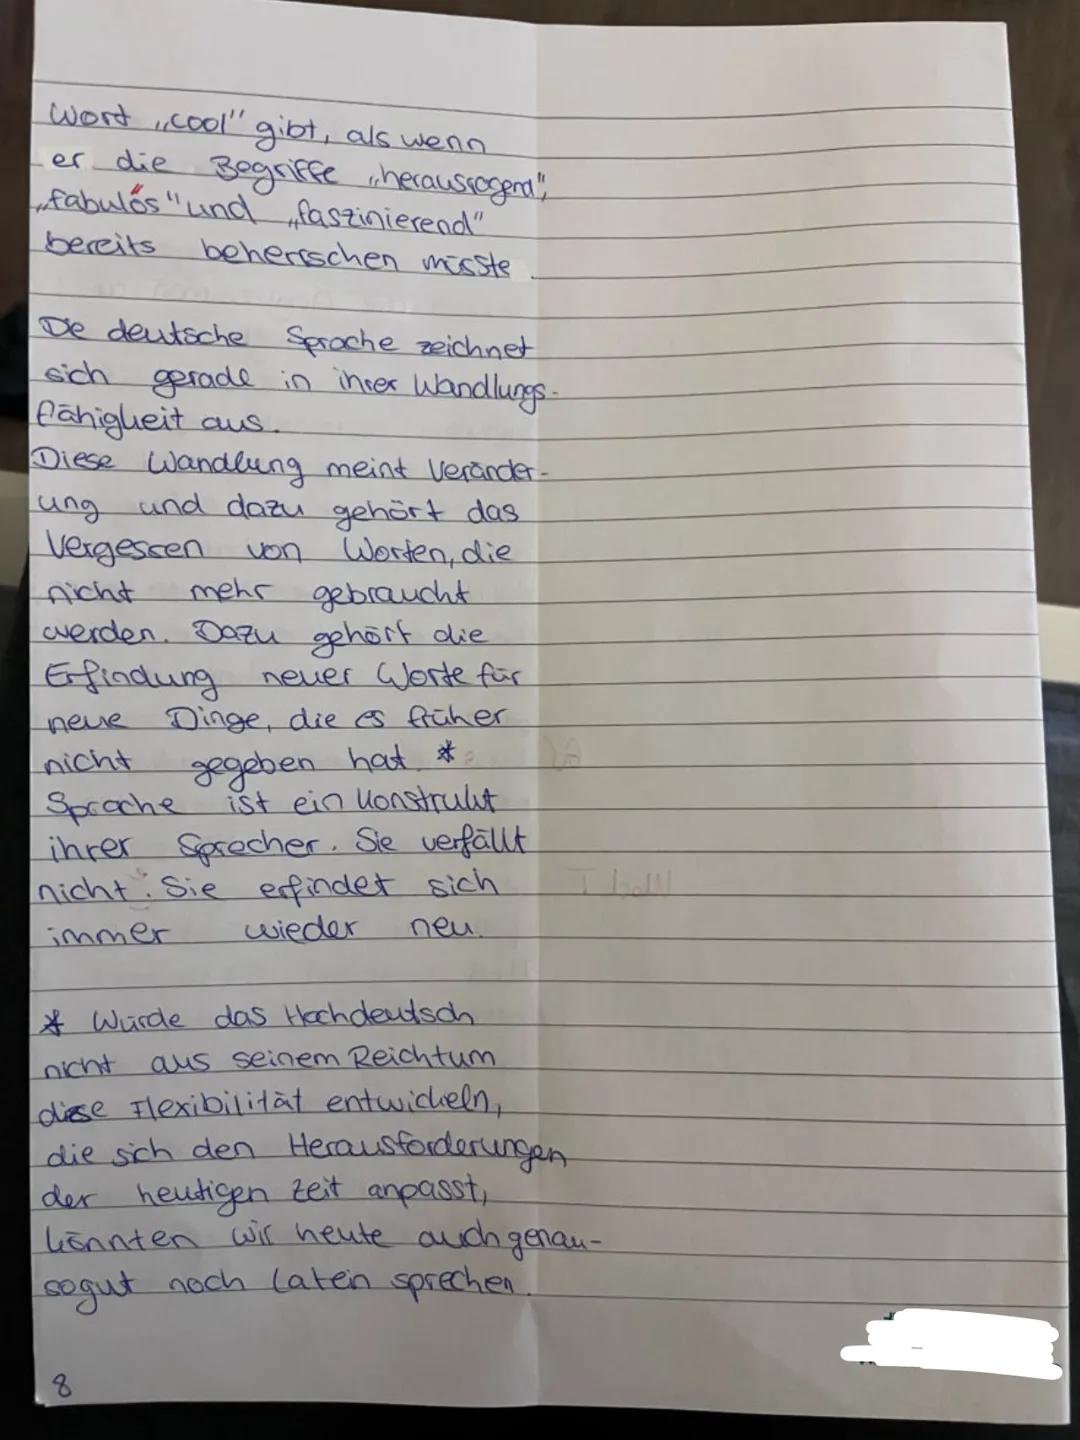 Wort „cool" gibt, als wenn
er die Begriffe „herausragend",
„fabulös" und „faszinierend"
bereits beherrschen müsste.
Die deutsche Sprache zeichnet
sich gerade in ihrer Wandlungs-
fähigkeit aus.
Diese Wandlung meint Veränder-
ung und dazu gehört das
Vergessen von Worten, die
nicht mehr gebraucht
werden. Dazu gehört die
Erfindung neuer Worte für
neue Dinge, die es früher
nicht gegeben hat. *
Sprache ist ein Konstrukt
ihrer Sprecher. Sie verfällt
nicht. Sie erfindet sich
immer wieder neu.
* Würde das Hochdeutsch
nicht aus seinem Reichtum
diese Flexibilität entwickeln,
die sich den Herausforderungen
der heutigen Zeit anpasst,
könnten wir heute auch genau-
sogut noch Latein sprechen.
8